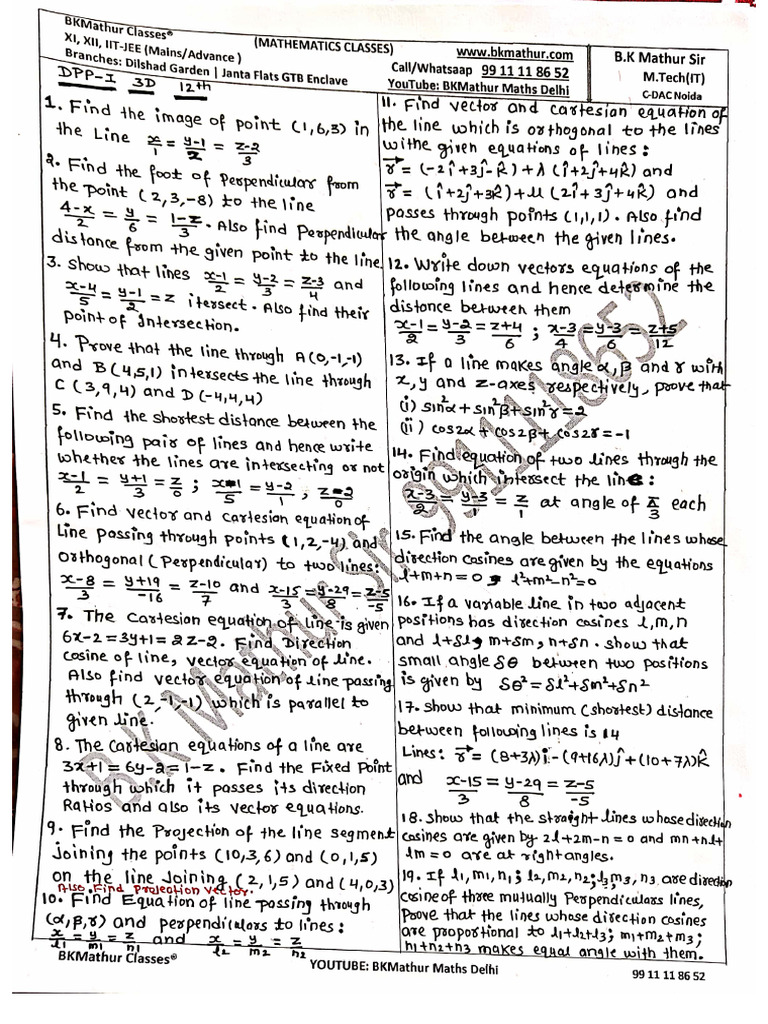 BKMathur Classes®
XI, XII, IIT-JEE (Mains/Advance )
Branches: Dilshad Garden | Janta Flats GTB Enclave
(MATHEMATICS CLASSES)
www.bkmathur.com
Call/Whatsaap 99 11 11 86 52
YouTube: BKMathur Maths Delhi
B.K Mathur Sir
M.Tech(IT)
C-DAC Noida
DPP-I 3D 12th
1. Find the image of point (1,6,3) in
the Line x/1 = y-1/2 = z-2/3
2. Find the foot of Perpendicular from
the point (2,3,-8) to the line
4-x/2 = y/6 = 1-z/3. Also find Perpendicular
distance from the given point to the line
3. Show that lines x-1/2 = y-2/3 = z-3/4 and
x-4/5 = y-1/2 = z itersect. Also find their
Point of Intersection.
4. Prove that the line through A(0,-1,-1)
and B(4,5,1) intersects the line through
C(3,9,4) and D(-4,4,4)
5. Find the shortest distance between the
following pair of lines and hence write
whether the lines are intersecting or not
x-1/2 = y+1/3 = z/0 ; x-1/5 = y-2/1 ; z-2/0
6. Find vector and cartesian equation of
Line passing through points (1,2,-4) and
orthogonal (Perpendicular) to two lines:
x-8/3 = y+19/-16 = z-10/7 and x-15/3 = y-29/8 = z-5/-5
7. The Cartesian equation of line is given
6x-2=3y+1=2z-2. Find Direction
Cosine of line, vector equation of line.
Also find vector equation of line passing
through (2,-1,-1) which is parallel to
given line.
8. The Cartesian equations of a line are
3x+1=6y-2=1-z. Find the Fixed Point
through which it passes its direction
Ratios and also its vector equations.
9. Find the Projection of the line segment
Joining the points (10,3,6) and (0,1,5)
on the line Joining (2,1,5) and (4,0,3)
Also Find Projection vector.
10. Find Equation of line passing through
(α,β,γ) and perpendiculars to lines:
x/l1 = y/m1 = z/n1 and x/l2 = y/m2 = z/n2
11. Find vector and cartesian equation of
the line which is orthogonal to the lines
withe given equations of lines:
r⃗ = (-2î+3ĵ-k̂)+λ(î+2ĵ+4k̂) and
r⃗ = (î+2ĵ+3k̂)+μ(2î+3ĵ+4k̂) and
passes through points (1,1,1). Also find
the angle between the given lines.
12. Write down vectors equations of the
following lines and hence determine the
distance between them
x-1/2 = y-2/3 = z+4/6 ; x-3/4 = y-3/6 = z+5/12
13. If a line makes angle α,β and γ with
x,y and z-axes respectively, prove that
(i) sin²α+sin²β+sin²γ=2
(ii) cos2α+cos2β+cos2γ=-1
14. Find equation of two lines through the
origin which intersect the line:
x-3/2 = y-3/1 = z/1 at angle of π/3 each
15. Find the angle between the lines whose
direction cosines are given by the equations
l+m+n=0, l²+m²-n²=0
16. If a variable line in two adjacent
positions has direction cosines l,m,n
and l+δl, m+δm, n+δn. show that
small angle δθ between two positions
is given by δθ²=δl²+δm²+δn²
17. Show that minimum (shortest) distance
between following lines is 14
Lines: r⃗ = (8+3λ)î-(9+16λ)ĵ+(10+7λ)k̂
and x-15/3 = y-29/8 = z-5/-5
18. Show that the straight lines whose direction
cosines are given by 2l+2m-n=0 and mn+nl+
lm=0 are at right angles.
19. If l1,m1,n1; l2,m2,n2; l3,m3,n3 are direction
cosine of three mutually Perpendiculars lines,
Prove that the lines whose direction cosines
are proportional to l1+l2+l3; m1+m2+m3;
n1+n2+n3 makes equal angle with them.
B.K Mathur Sir 9911118652
BKMathur Classes®
YOUTUBE: BKMathur Maths Delhi
99 11 11 86 52